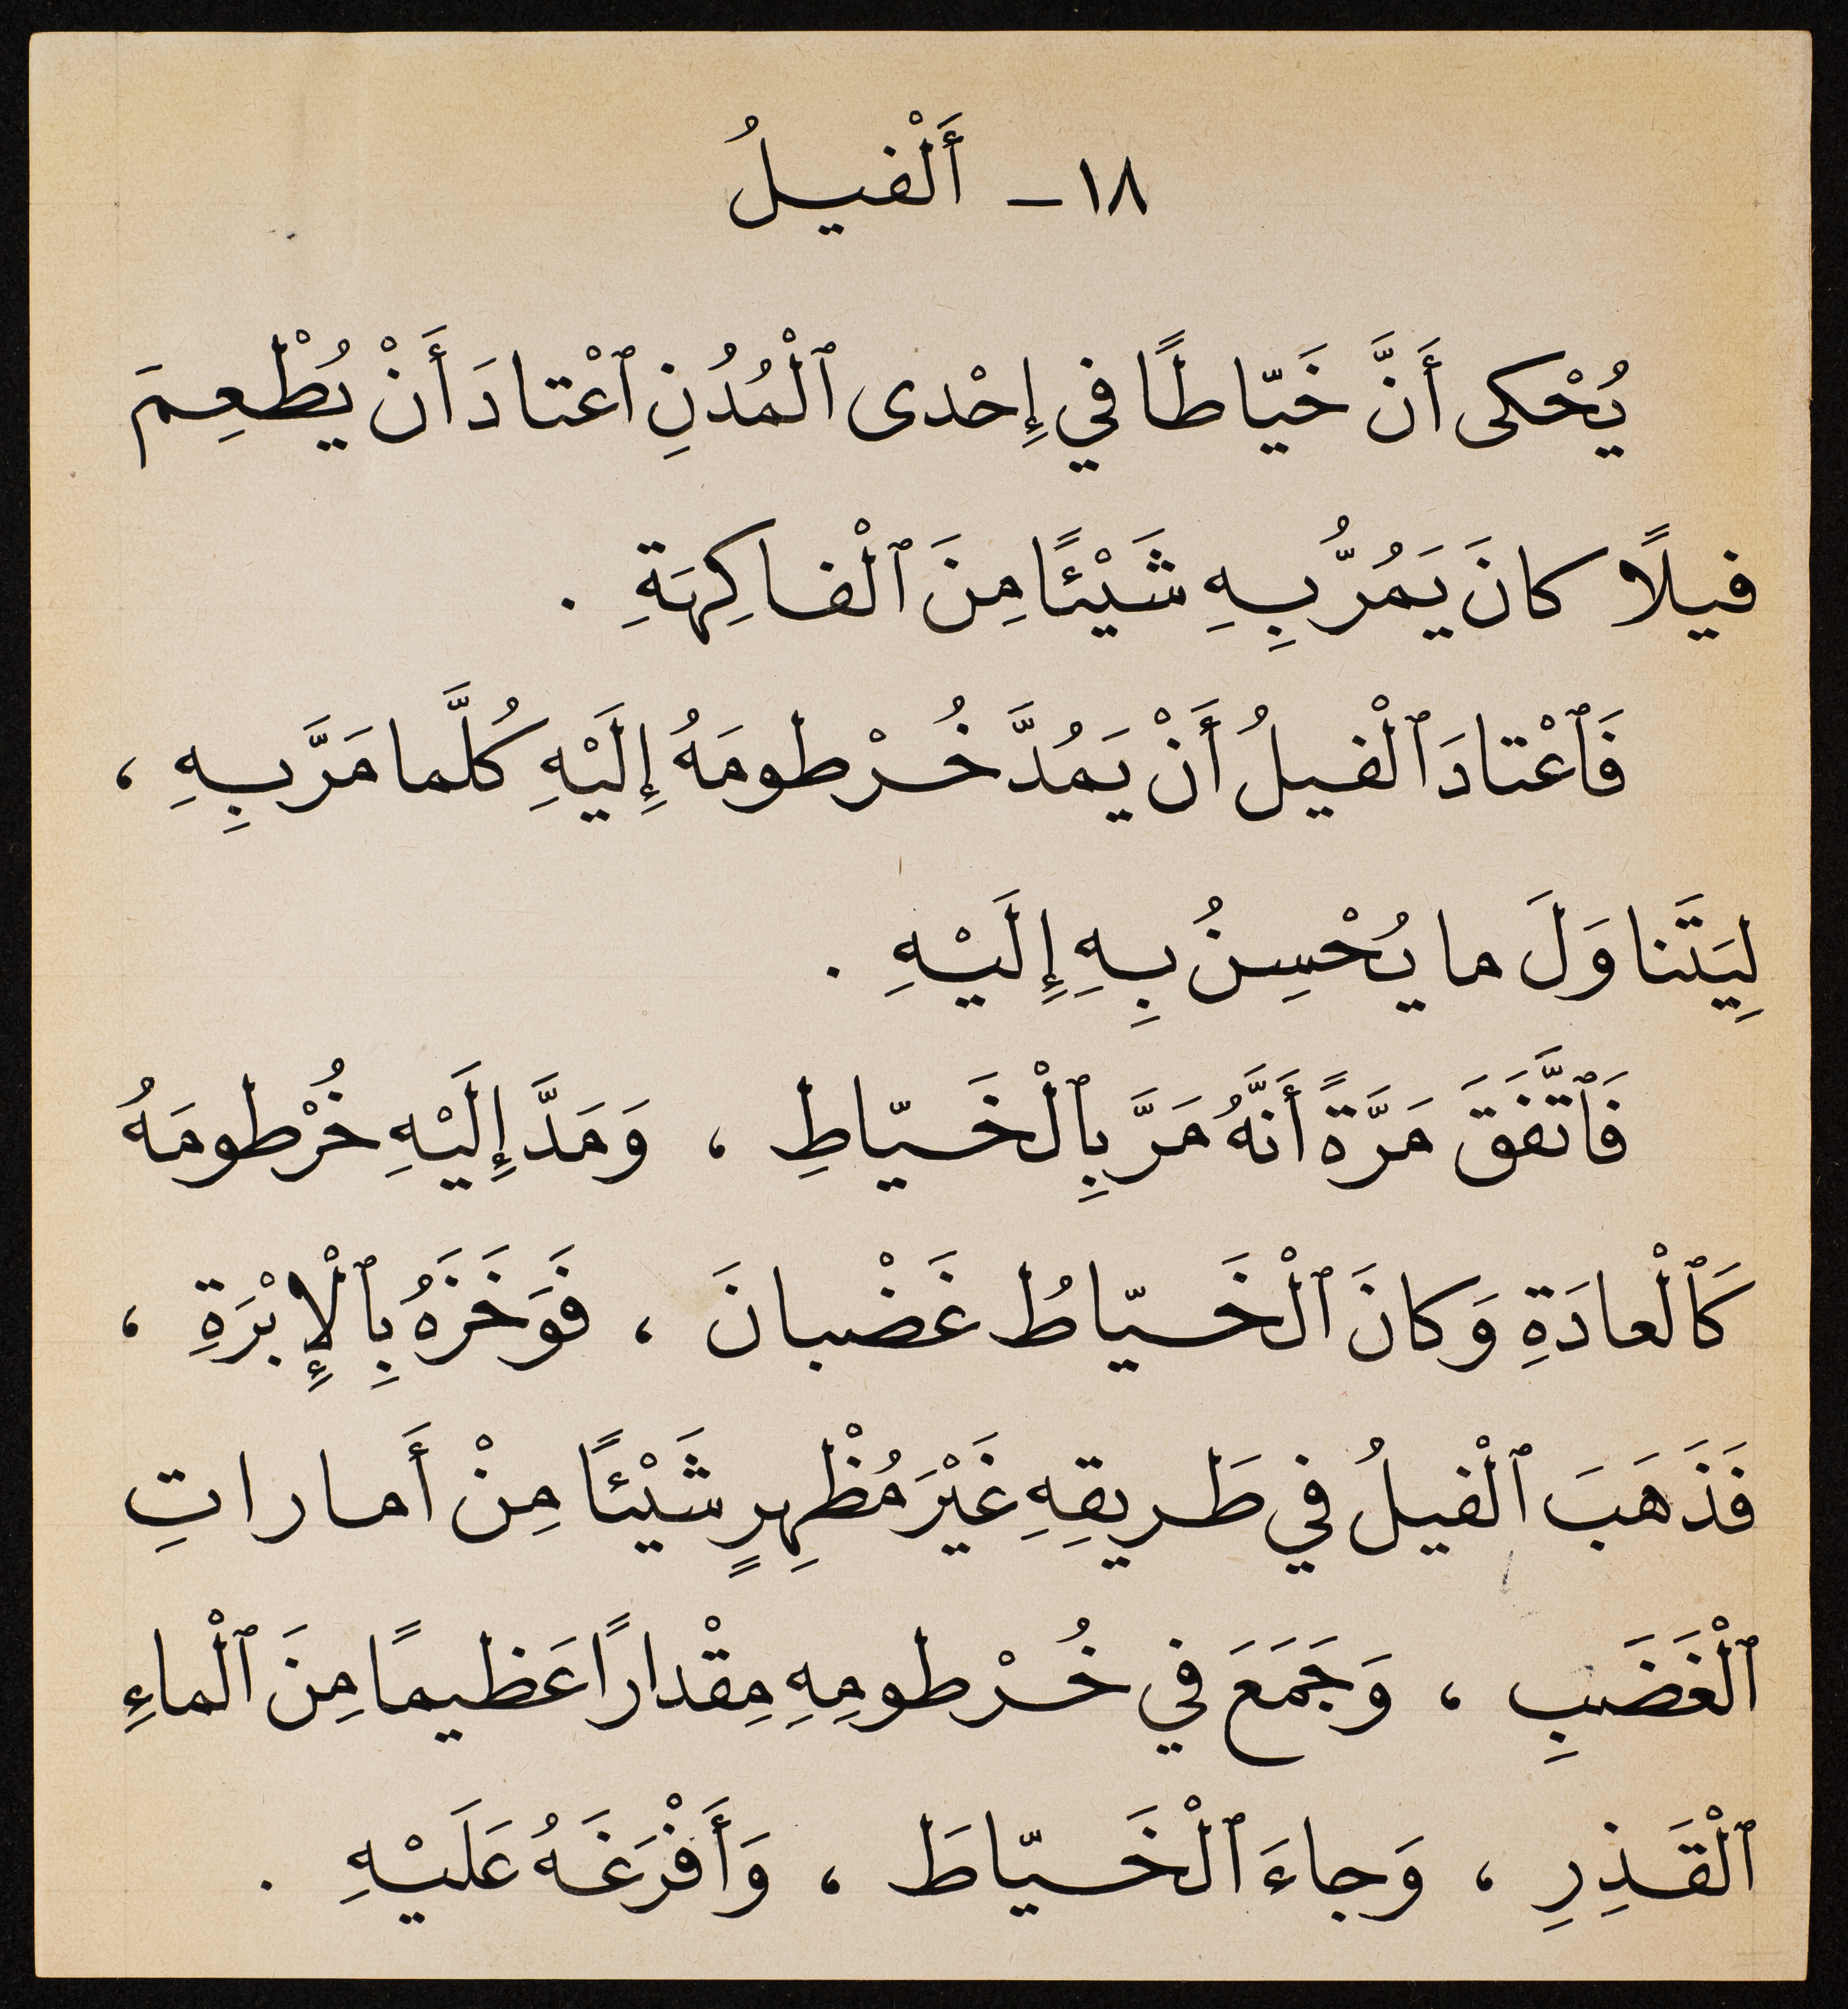 ١٨ – أَلْفيلُ
يُحْكى أَنَّ خَيّاطًا في إِحْدى ٱلْمُدُنِ ٱعْتادَ أَنْ يُطْعِمَ
فيلًا كانَ يَمُرُّ بِهِ شَيْئًا مِنَ ٱلْفاكِهَةِ .
فَٱعْتادَ ٱلْفيلُ أَنْ يَمُدَّ خُرْطومَهُ إِلَيْهِ كُلَّما مَرَّ بِهِ ،
لِيَتَناوَلَ ما يُحْسِنُ بِهِ إِلَيْهِ .
فَٱتَّفَقَ مَرَّةً أَنَّهُ مَرَّ بِٱلْخَيّاطِ ، وَمَدَّ إِلَيْهِ خُرْطومَهُ
كَٱلْعادَةِ وَكانَ ٱلْخَيّاطُ غَضْبانَ ، فَوَخَزَهُ بِٱلْإِبْرَةِ ،
فَذَهَبَ ٱلْفيلُ في طَريقِهِ غَيْرَ مُظْهِرٍ شَيْئًا مِنْ أَماراتِ
ٱلْغَضَبِ ، وَجَمَعَ في خُرْطومِهِ مِقْدارًا عَظيمًا مِنَ ٱلْماءِ
ٱلْقَذِرِ ، وَجاءَ ٱلْخَيّاطَ ، وَأَفْرَغَهُ عَلَيْهِ .